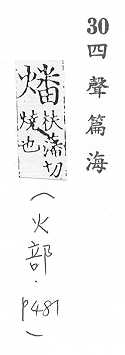 30四聲篇海
燔
扶藩切
燒也
(火部.p481)